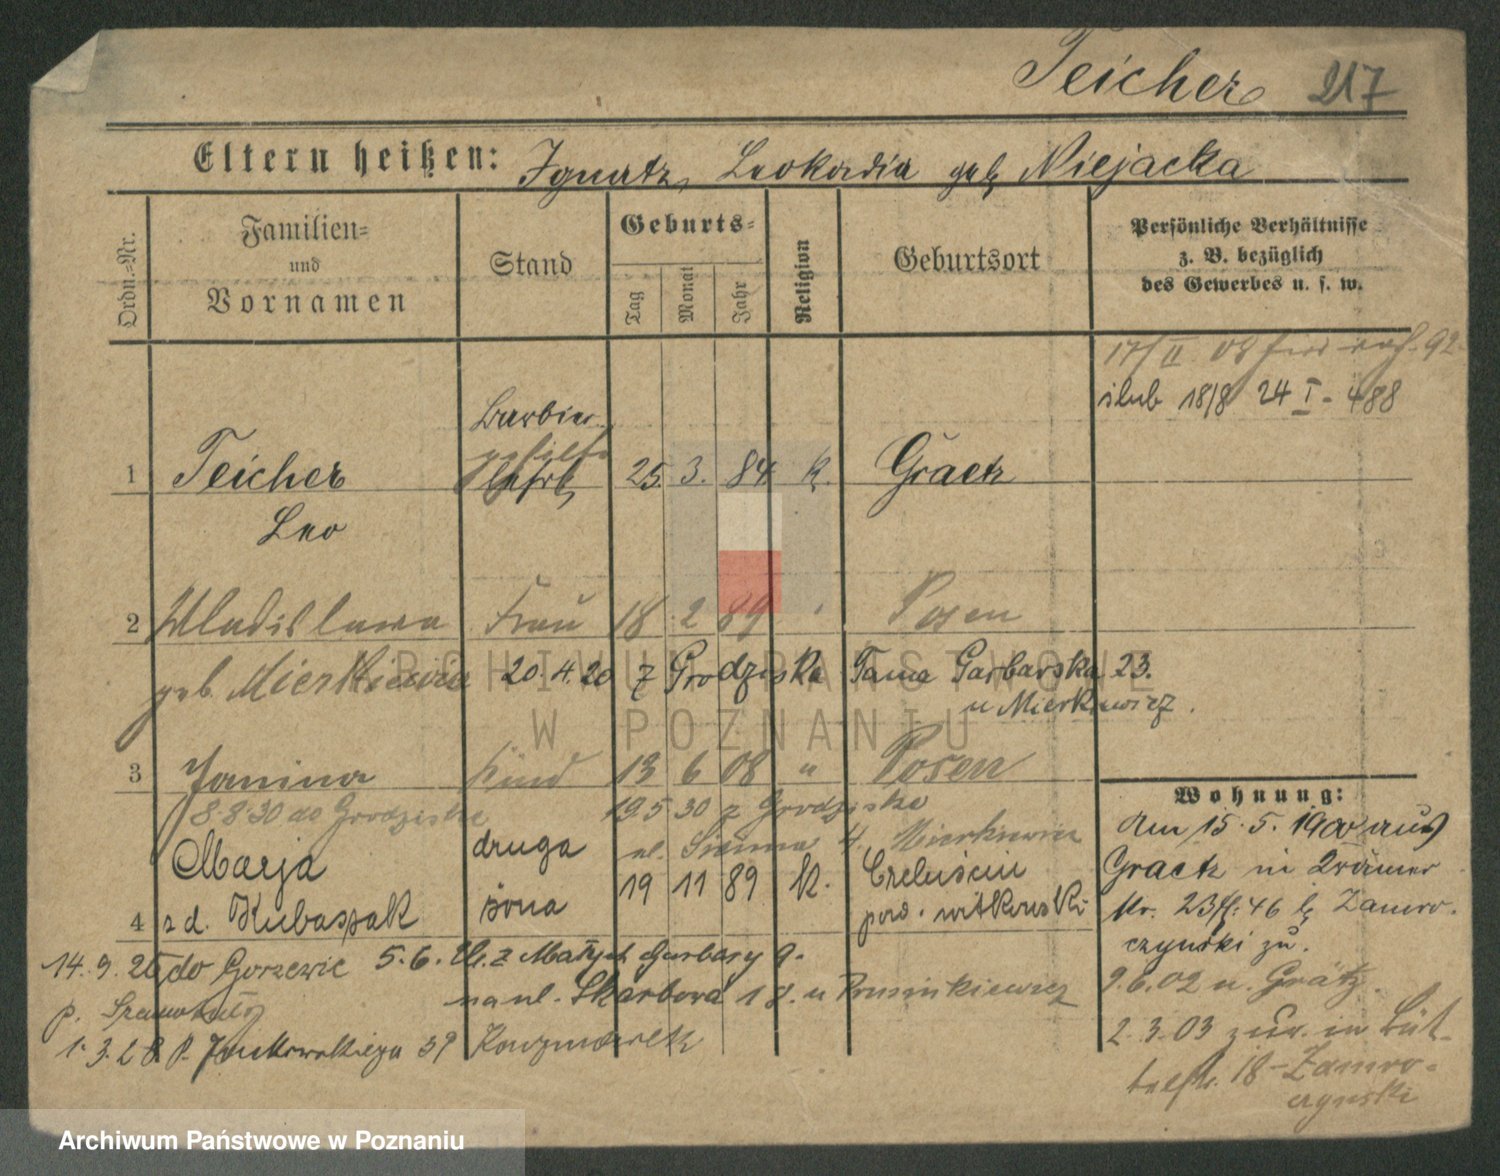 Teicher 217
Eltern heißen: Ignatz, Leokadia geb. Niejacka
Ordn.=Nr.
Familien=
und
Vornamen
Stand
Geburts=
Tag
Monat
Jahr
Religion
Geburtsort
Persönliche Verhältnisse
z. B. bezüglich
des Gewerbes u. s. w.
17/II 08 92
ślub 18/8 24 I - 488
Barbier
gehilfe
1 Teicher Lehrl. 25. 3. 84 k. Graetz
Leo
2 Wladislawa Frau 18 2 89 " Posen
geb. Mierkiewicz 20.4.20 z Grodziska Tama Garbarska 23.
u Mierkiewicz.
3 Janina Kind 13 6 08 " Posen
8.8.30 do Grodziska 19.5 30 z Grodziska
ul. 4. Mierkiewicz
Marja druga 19 11 89 k.
4 z d. Kubaszak żona pow. witkowski
14.9.26 do Gorzewic 5.6. z Małych Garbary 9.
p. Szamotuły na ul. Skarbowa 18. u
1.3.28 P. Jackowskiego 39
Wohnung:
Am 15.5.1900 aus
Graetz in
Str. 23 b. Zamro-
czynski zu.
9.6.02 n. Grätz.
2.3.03 zur. in Büt-
telstr. 18 - Zamro-
czynski
ARCHIWUM PAŃSTWOWE
W POZNANIU
Archiwum Państwowe w Poznaniu